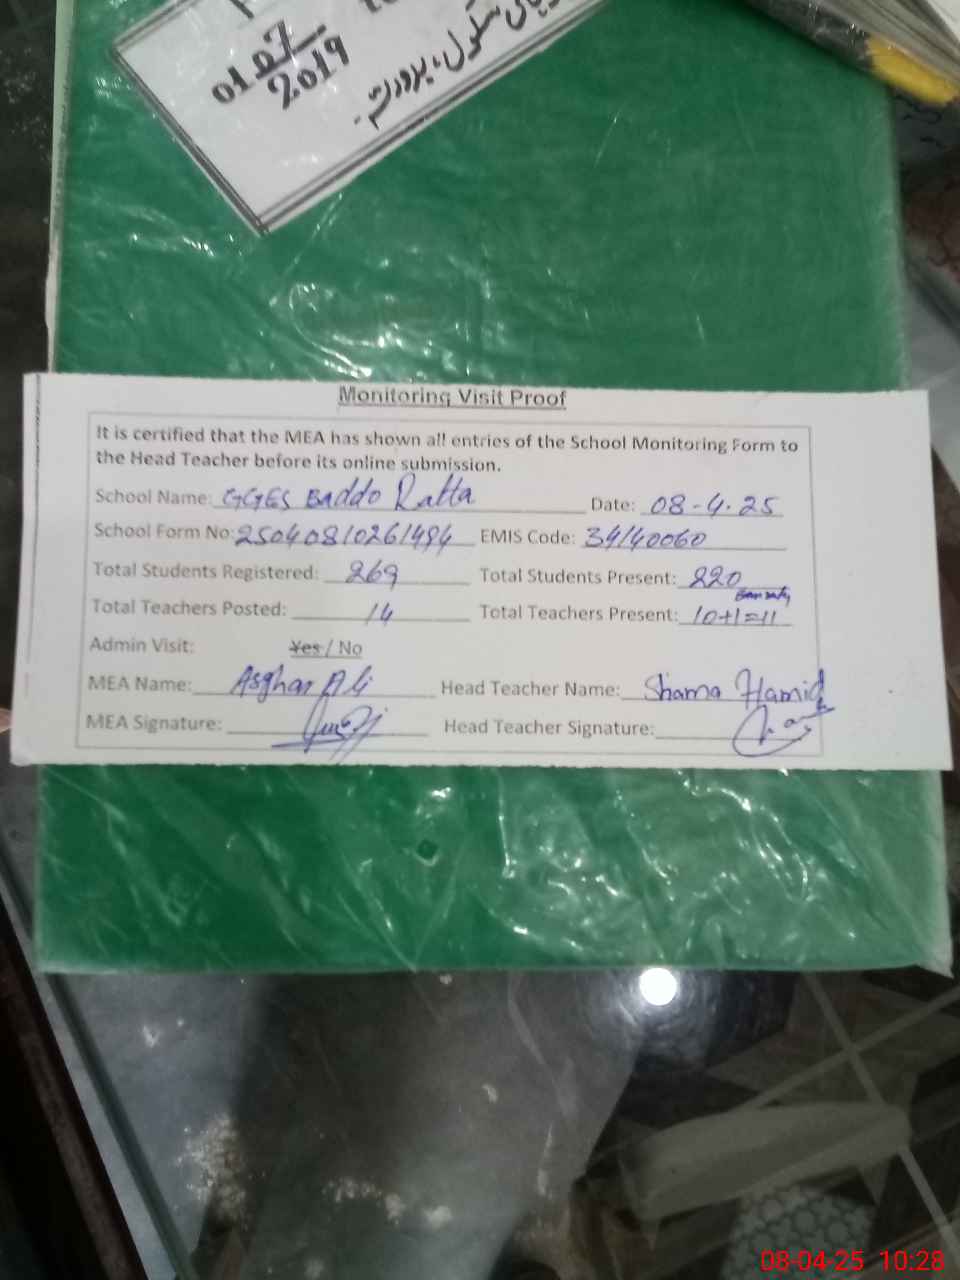 01 07/2019
Monitoring Visit Proof
It is certified that the MEA has shown all entries of the School Monitoring Form to
the Head Teacher before its online submission.
School Name: GGES Baddo Ratta Date: 08-4-25
School Form No: 25040810261494 EMIS Code: 34140060
Total Students Registered: 269 Total Students Present: 220
Total Teachers Posted: 14 Total Teachers Present: 10+1=11
Admin Visit: Yes / No
MEA Name: Asghar Ali Head Teacher Name: Shama Hamid
MEA Signature: Head Teacher Signature:
08-04-25 10:28